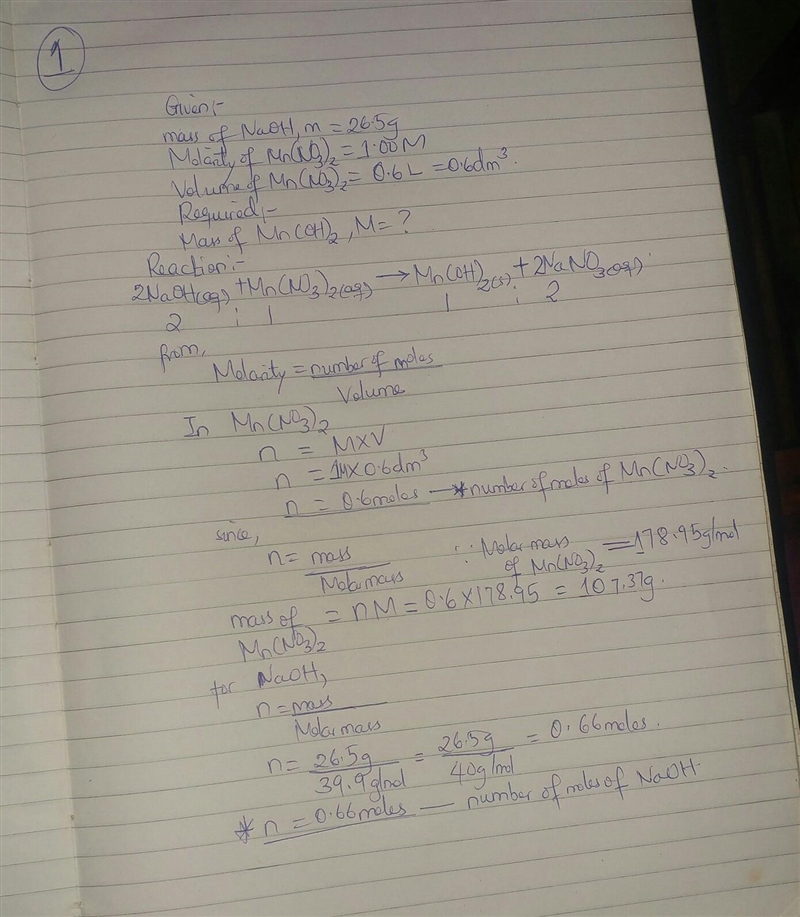 1
Given:-
mass of NaOH, m = 26.5g
Molarity of Mn(NO3)2 = 1.00M
Volume of Mn(NO3)2 = 0.6L = 0.6dm³.
Required:-
Mass of Mn(OH)2, M = ?
Reaction:-
2NaOH(aq) + Mn(NO3)2(aq) → Mn(OH)2(s) + 2NaNO3(aq).
2 : 1 1 : 2
from,
Molarity = number of moles
Volume
In Mn(NO3)2
n = M×V
n = 1M×0.6dm³
n = 0.6moles —* number of moles of Mn(NO3)2.
since,
n = mass ∵ Molar mass = 178.95g/mol
Molar mass of Mn(NO3)2
mass of = nM = 0.6×178.95 = 107.37g.
Mn(NO3)2
for NaOH,
n = mass
Molar mass
n = 26.5g = 26.5g = 0.66moles.
39.9g/mol 40g/mol
* n = 0.66moles — number of moles of NaOH.